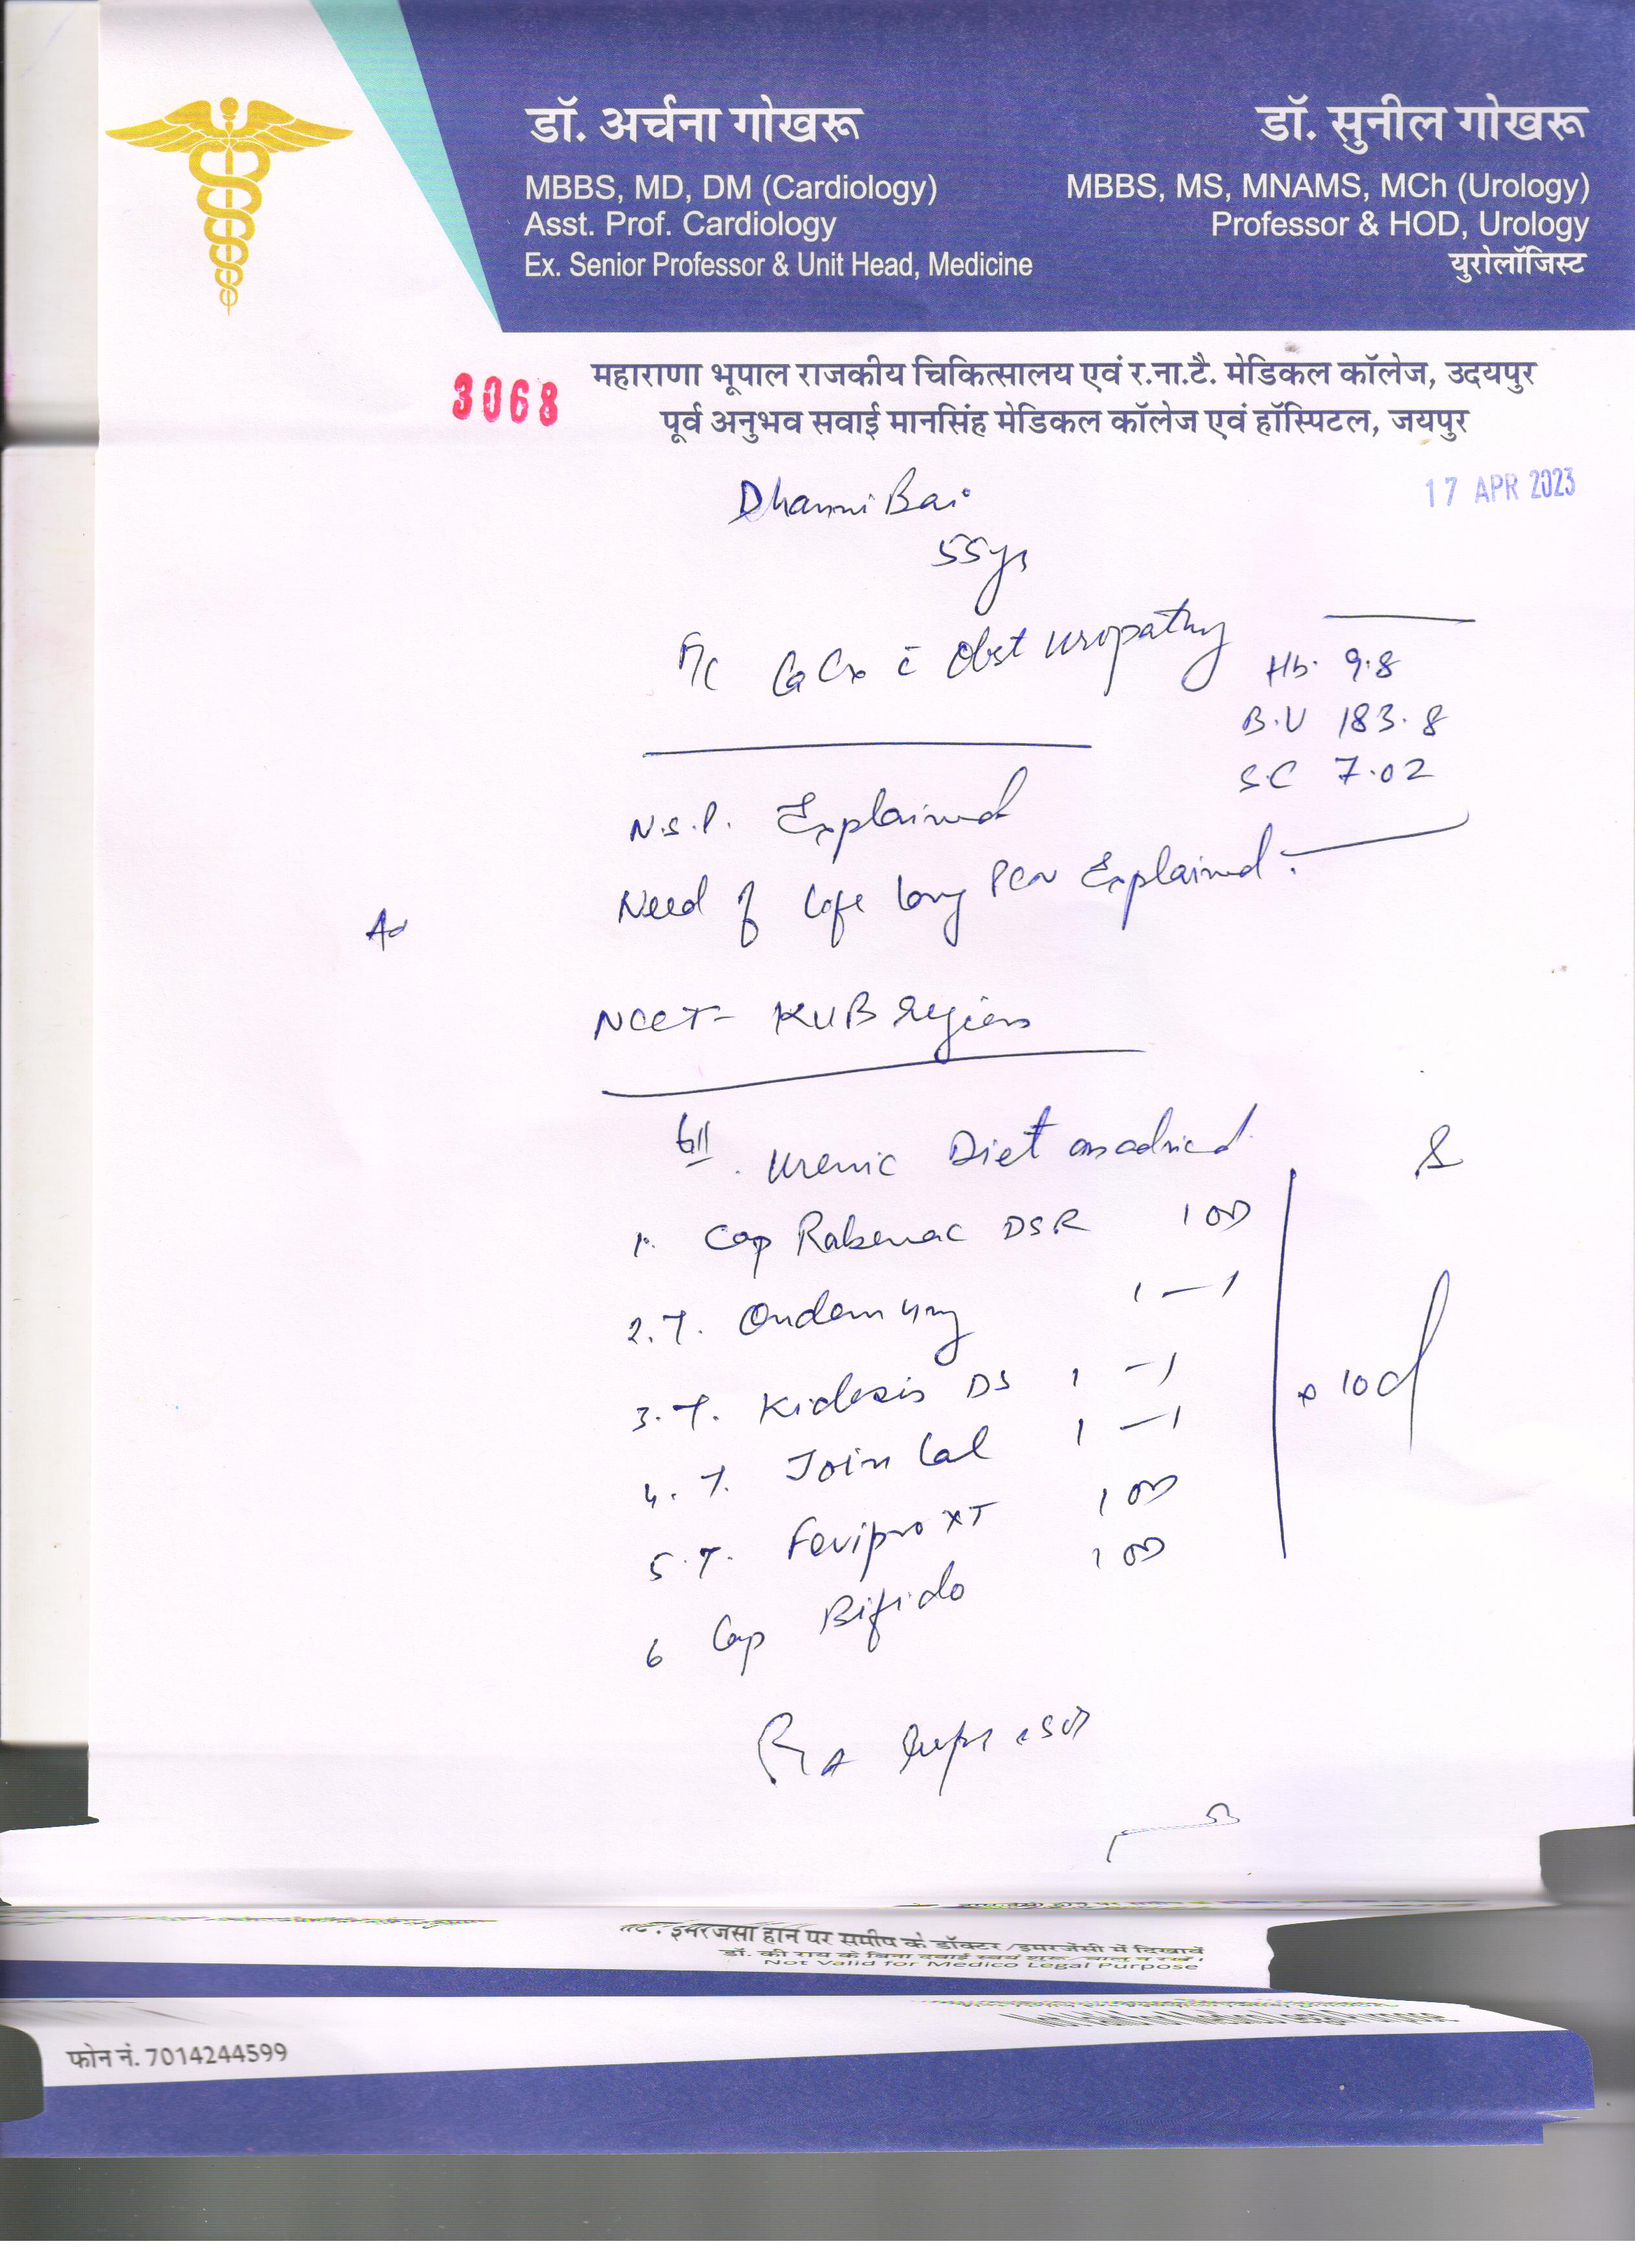 डॉ. अर्चना गोखरू
MBBS, MD, DM (Cardiology)
Asst. Prof. Cardiology
Ex. Senior Professor & Unit Head, Medicine
डॉ. सुनील गोखरू
MBBS, MS, MNAMS, MCh (Urology)
Professor & HOD, Urology
युरोलॉजिस्ट
3068
महाराणा भूपाल राजकीय चिकित्सालय एवं र.ना.टै. मेडिकल कॉलेज, उदयपुर
पूर्व अनुभव सवाई मानसिंह मेडिकल कॉलेज एवं हॉस्पिटल, जयपुर
17 APR 2023
Dhanni Bai
55yrs
Ca Cx c̄ Obst uropathy
Hb. 9.8
B.U 183.8
S.C 7.02
N.S.P. Explained
Need of Life long PCN Explained.
Ad
NCCT- KUB region
Uremic Diet as advised
1. Cap Rabenac DSR 1 OD
2. T. Ondem 4mg 1 — 1
3. T. Kidezis DS 1 — 1
4. T. Join Cal 1 — 1
5. T. Fevipro XT 1 OD
6 Cap Bifido 1 OD
x 10d
R/A
इमरजेंसी में दिखावें
Not Valid for Medico Legal Purpose
फोन नं. 7014244599